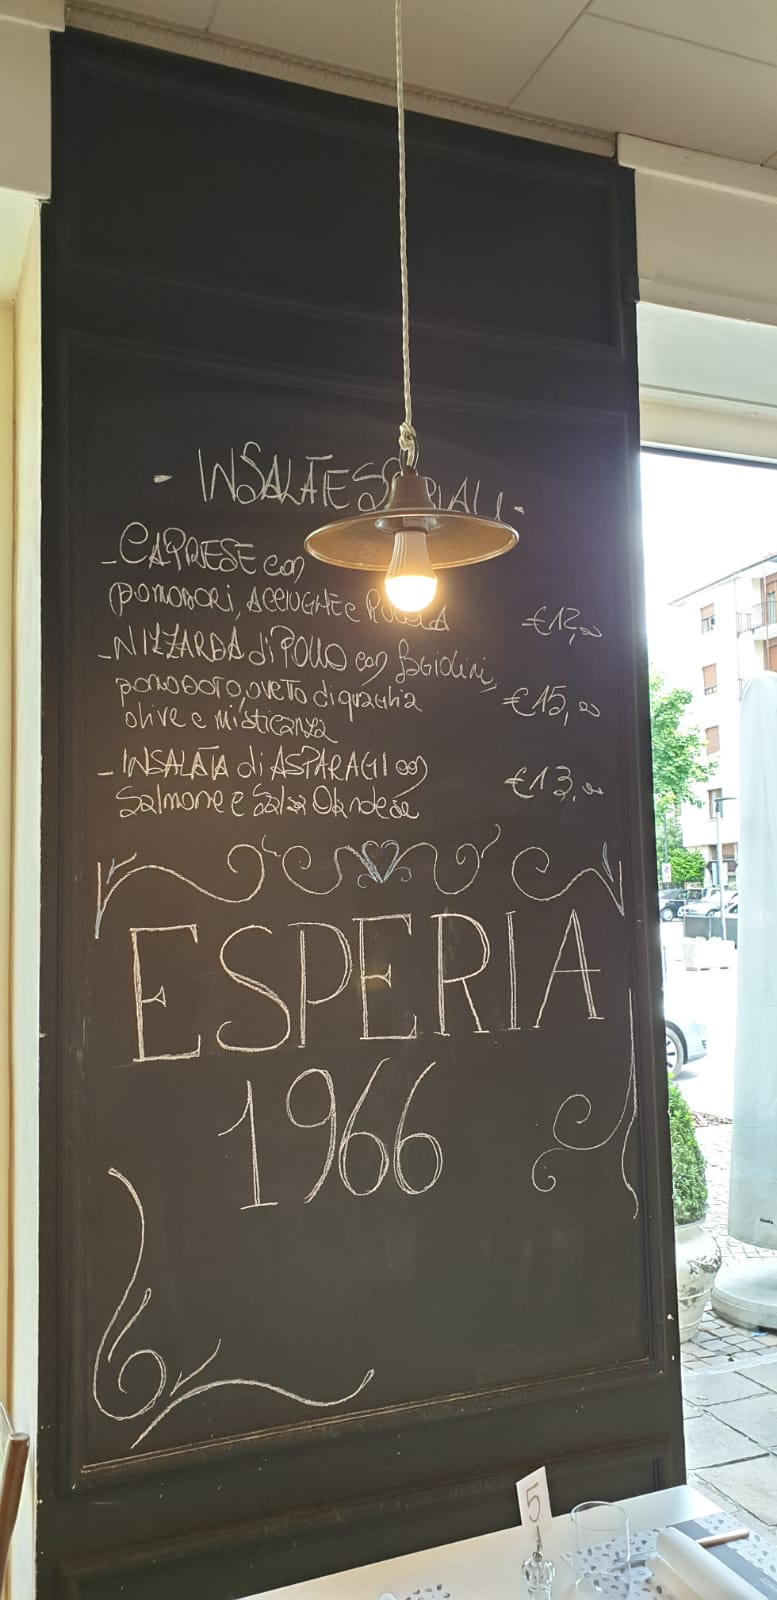 - INSALATE SPECIALI -
- CAPRESE con
pomodori, ACCIUGHE e RUCOLA €12,00
- NIZZARDA di POLLO con fagiolini,
pomodoro, oveTo di quaglia €15,00
olive e misticanza
- INSALATA di ASPARAGI con
Salmone e Salsa Olandese €13,00
ESPERIA
1966
5